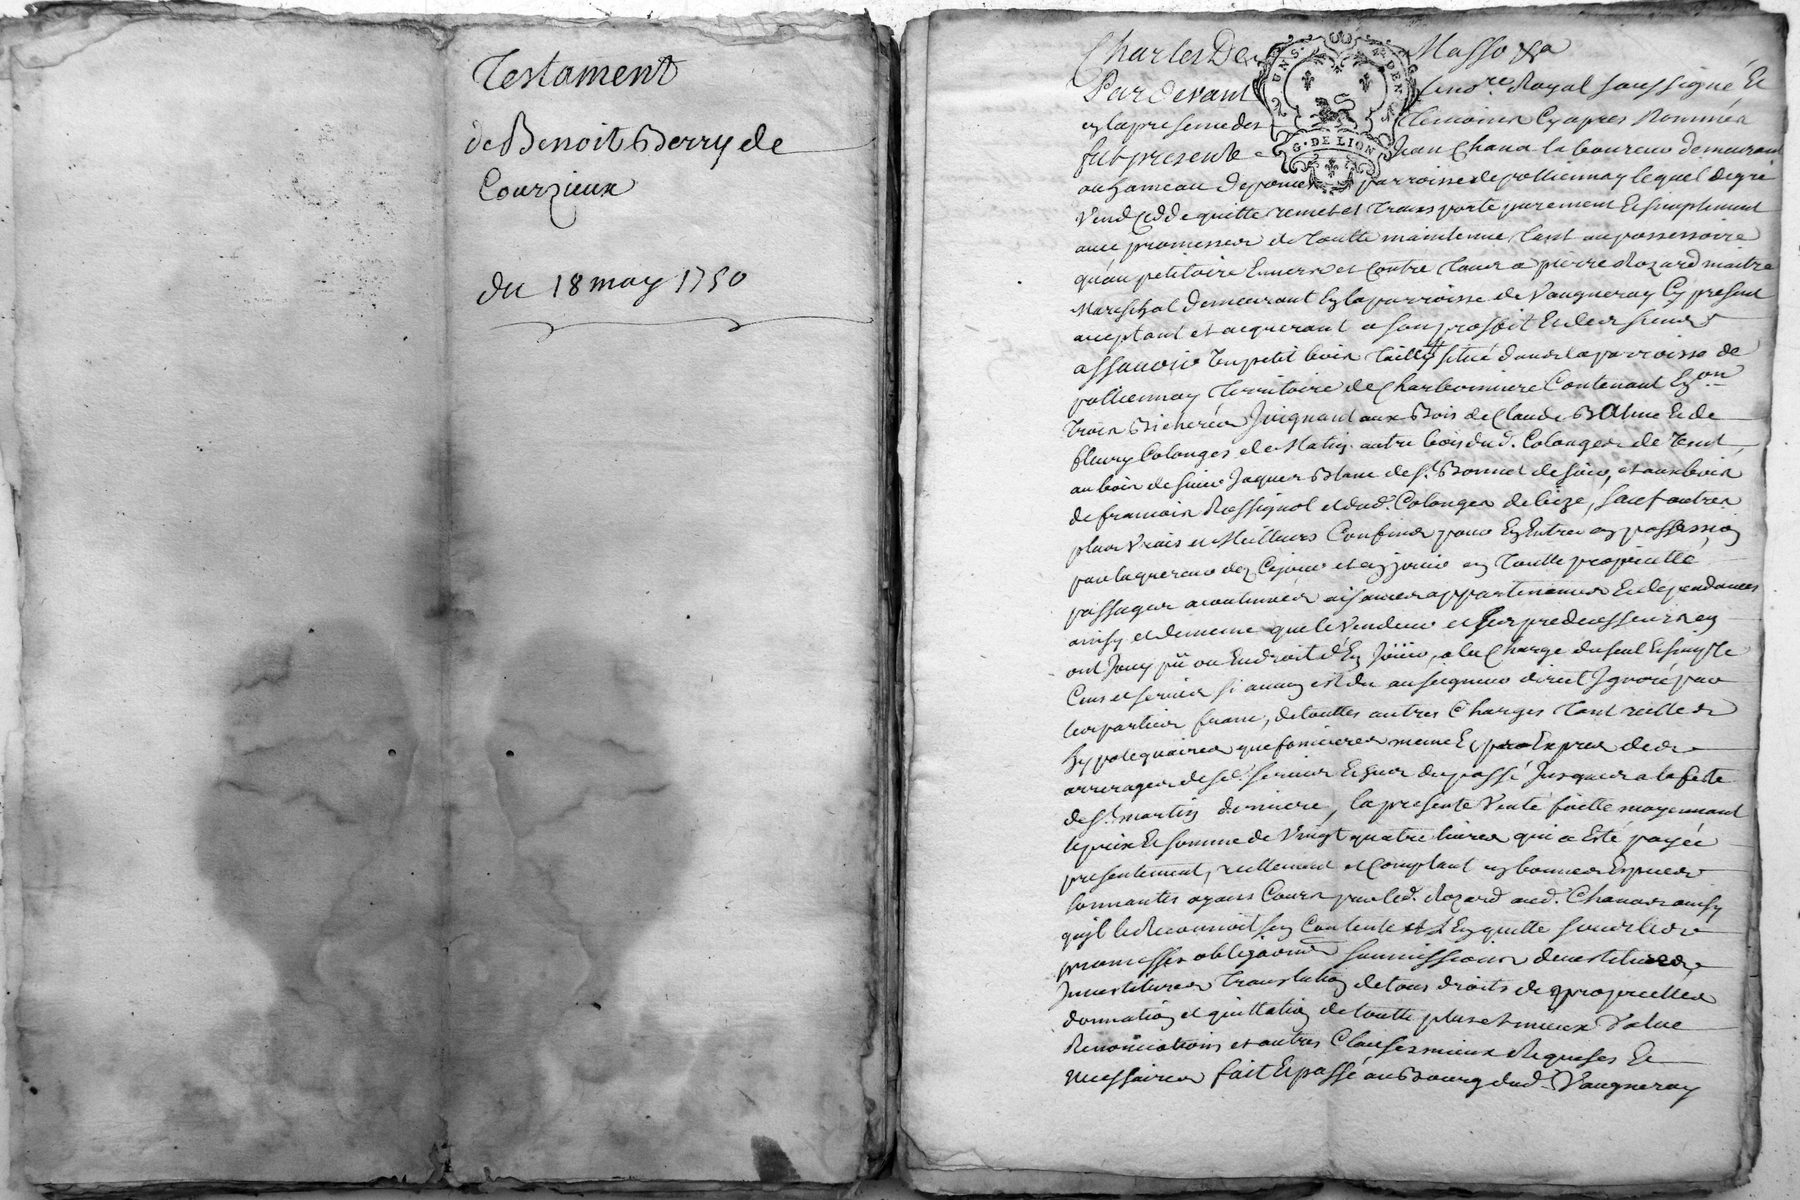 Testament
de Benoit Berry de
Courzieux
du 18 may 1750
Charles De Masso &a
Pardevant le no.re Royal soussigné Et
En la presence des Temoins Cy apres Nommés
fut present Jean Chana laboureur demeurant
au hameau de parroisse de pollionnay lequel de gré
Vend cedde quitte remet et Transporte purement Et simplement
avec promesses de Toutte maintenue Tant au possessoire
qu'au petitoire Envers et Contre Tous a pierre Rozard maitre
Mareschal demeurant En la parroisse de Vaugneray Cy present
acceptant et acquerant a son proffit Et des siens
assavoir Un petit bois Taillis situé dans la parroisse de
pollionnay Territoire de Charbonniere Contenant En.on
Trois Bicherées Joignant aux Bois de Claude Balme Et de
fleury Colonges de Matin, autre bois du d. Colonges de Vent
au bois de sieur Jaques Blanc de St. Bonnet de soir, et aux bois
de francois Rossignol et du d. Colonges de bize, sauf autres
plus Vrais et Meilleurs Confins pour En Entrer en possession
par laquereur dez Cejour et en jouir en Toutte proprietté
passages accoutumés aisances appartenances Et dependances
ainsy et de meme que le Vendeur et ses predecesseurs en
ont Jouy pû ou En droit d'En Joüir, a la Charge du seul Et simple
Cens et servis si aucun est du au seigneur direct Ignoré par
les parties franc, de touttes autres Charges tant reelles
hypotequaires que foncieres meme Expres des
arrerages de sd. servis Echus du passé Jusques a la feste
de St. martin derniere, la presente Vente faitte moyennant
le prix Et somme de Vingt quatre livres qui a Esté payée
presentement, reellement et Comptant en bonnes Especes
sonnantes ayans Cours par led. Rozard aud. Chana ainsy
qu'il le Reconnoit sen Contente et L'En quitte sous les
promesses obligaons soumissions devestitures,
Investitures Translation de tous droits de proprietté
donnation et quittation de toutte plus et mieux Value
Renonciations et autres Clauses mieux Requises Et
Necessaires fait Et passé au Bourg dud. Vaugneray
UNS. DEN
G. DE LION